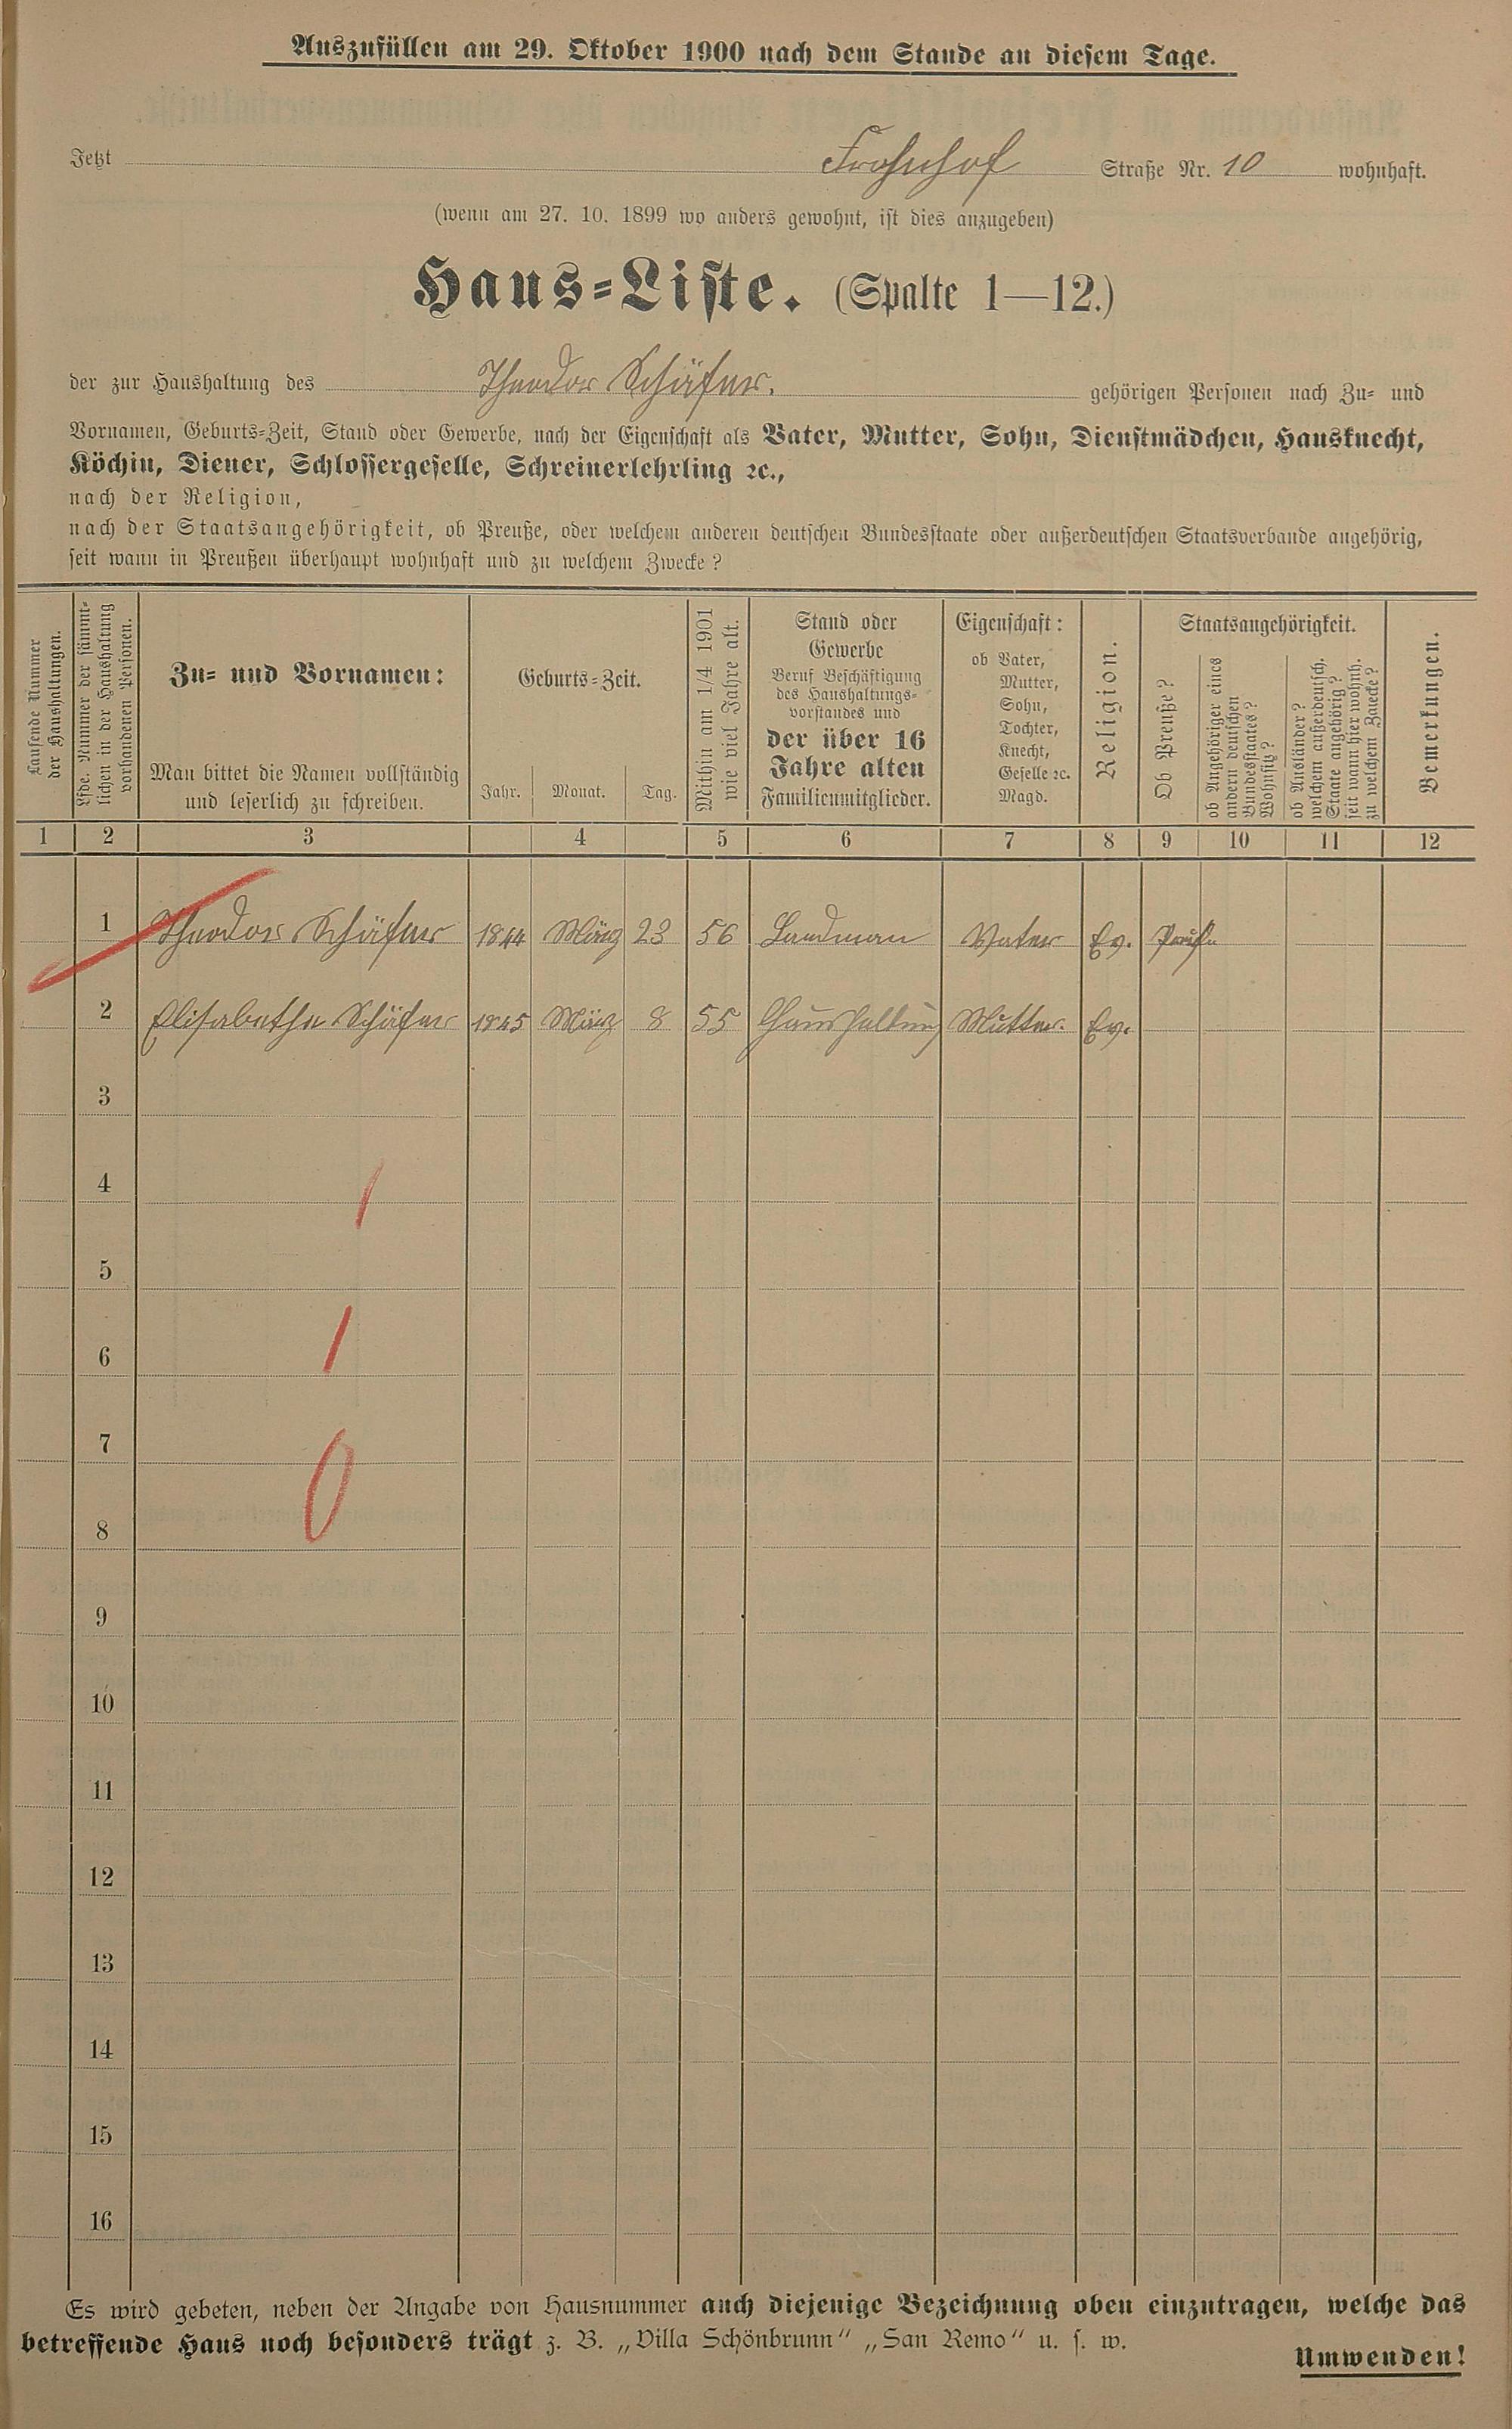 Auszufüllen am 29. Oktober 1900 nach dem Stande an diesem Tage.
Jetzt Frohnhof Straße Nr. 10 wohnhaft.
(wenn am 27. 10. 1899 wo anders gewohnt, ist dies anzugeben)
Haus-Liste. (Spalte 1—12.)
der zur Haushaltung des Theodor Schäfer. gehörigen Personen nach Zu- und
Vornamen, Geburts-Zeit, Stand oder Gewerbe, nach der Eigenschaft als Vater, Mutter, Sohn, Dienstmädchen, Hausknecht,
Köchin, Diener, Schlossergeselle, Schreinerlehrling ꝛc.,
nach der Religion,
nach der Staatsangehörigkeit, ob Preuße, oder welchem anderen deutschen Bundesstaate oder außerdeutschen Staatsverbande angehörig,
seit wann in Preußen überhaupt wohnhaft und zu welchem Zwecke?
Laufende Nummer
der Haushaltungen.
Lfde. Nummer der sämmt-
lichen in der Haushaltung
vorhandenen Personen.
Zu- und Vornamen:
Man bittet die Namen vollständig
und leserlich zu schreiben.
Geburts-Zeit.
Jahr. Monat. Tag.
Mithin am 1/4 1901
wie viel Jahre alt.
Stand oder
Gewerbe
Beruf Beschäftigung
des Haushaltungs-
vorstandes und
der über 16
Jahre alten
Familienmitglieder.
Eigenschaft:
ob Vater,
Mutter,
Sohn,
Tochter,
Knecht,
Geselle ꝛc.
Magd.
Religion.
Staatsangehörigkeit.
Ob Preuße?
ob Angehöriger eines
andern deutschen
Bundesstaates?
Wohnsitz?
ob Ausländer?
welchem außerdeutsch.
Staate angehörig?
seit wann hier wohnh.
zu welchem Zwecke?
Bemerkungen.
1 2 3 4 5 6 7 8 9 10 11 12
1 Theodor Schäfer 1844 März 23 56 Landman Vater Ev. Preuße
2 Elisabethe Schäfer 1845 März 8 55 Haushaltung Mutter. Ev.
3
4
1
5
6
1
7
0
8
9
10
11
12
13
14
15
16
Es wird gebeten, neben der Angabe von Hausnummer auch diejenige Bezeichnung oben einzutragen, welche das
betreffende Haus noch besonders trägt z. B. „Villa Schönbrunn“ „San Remo“ u. s. w.
Umwenden!